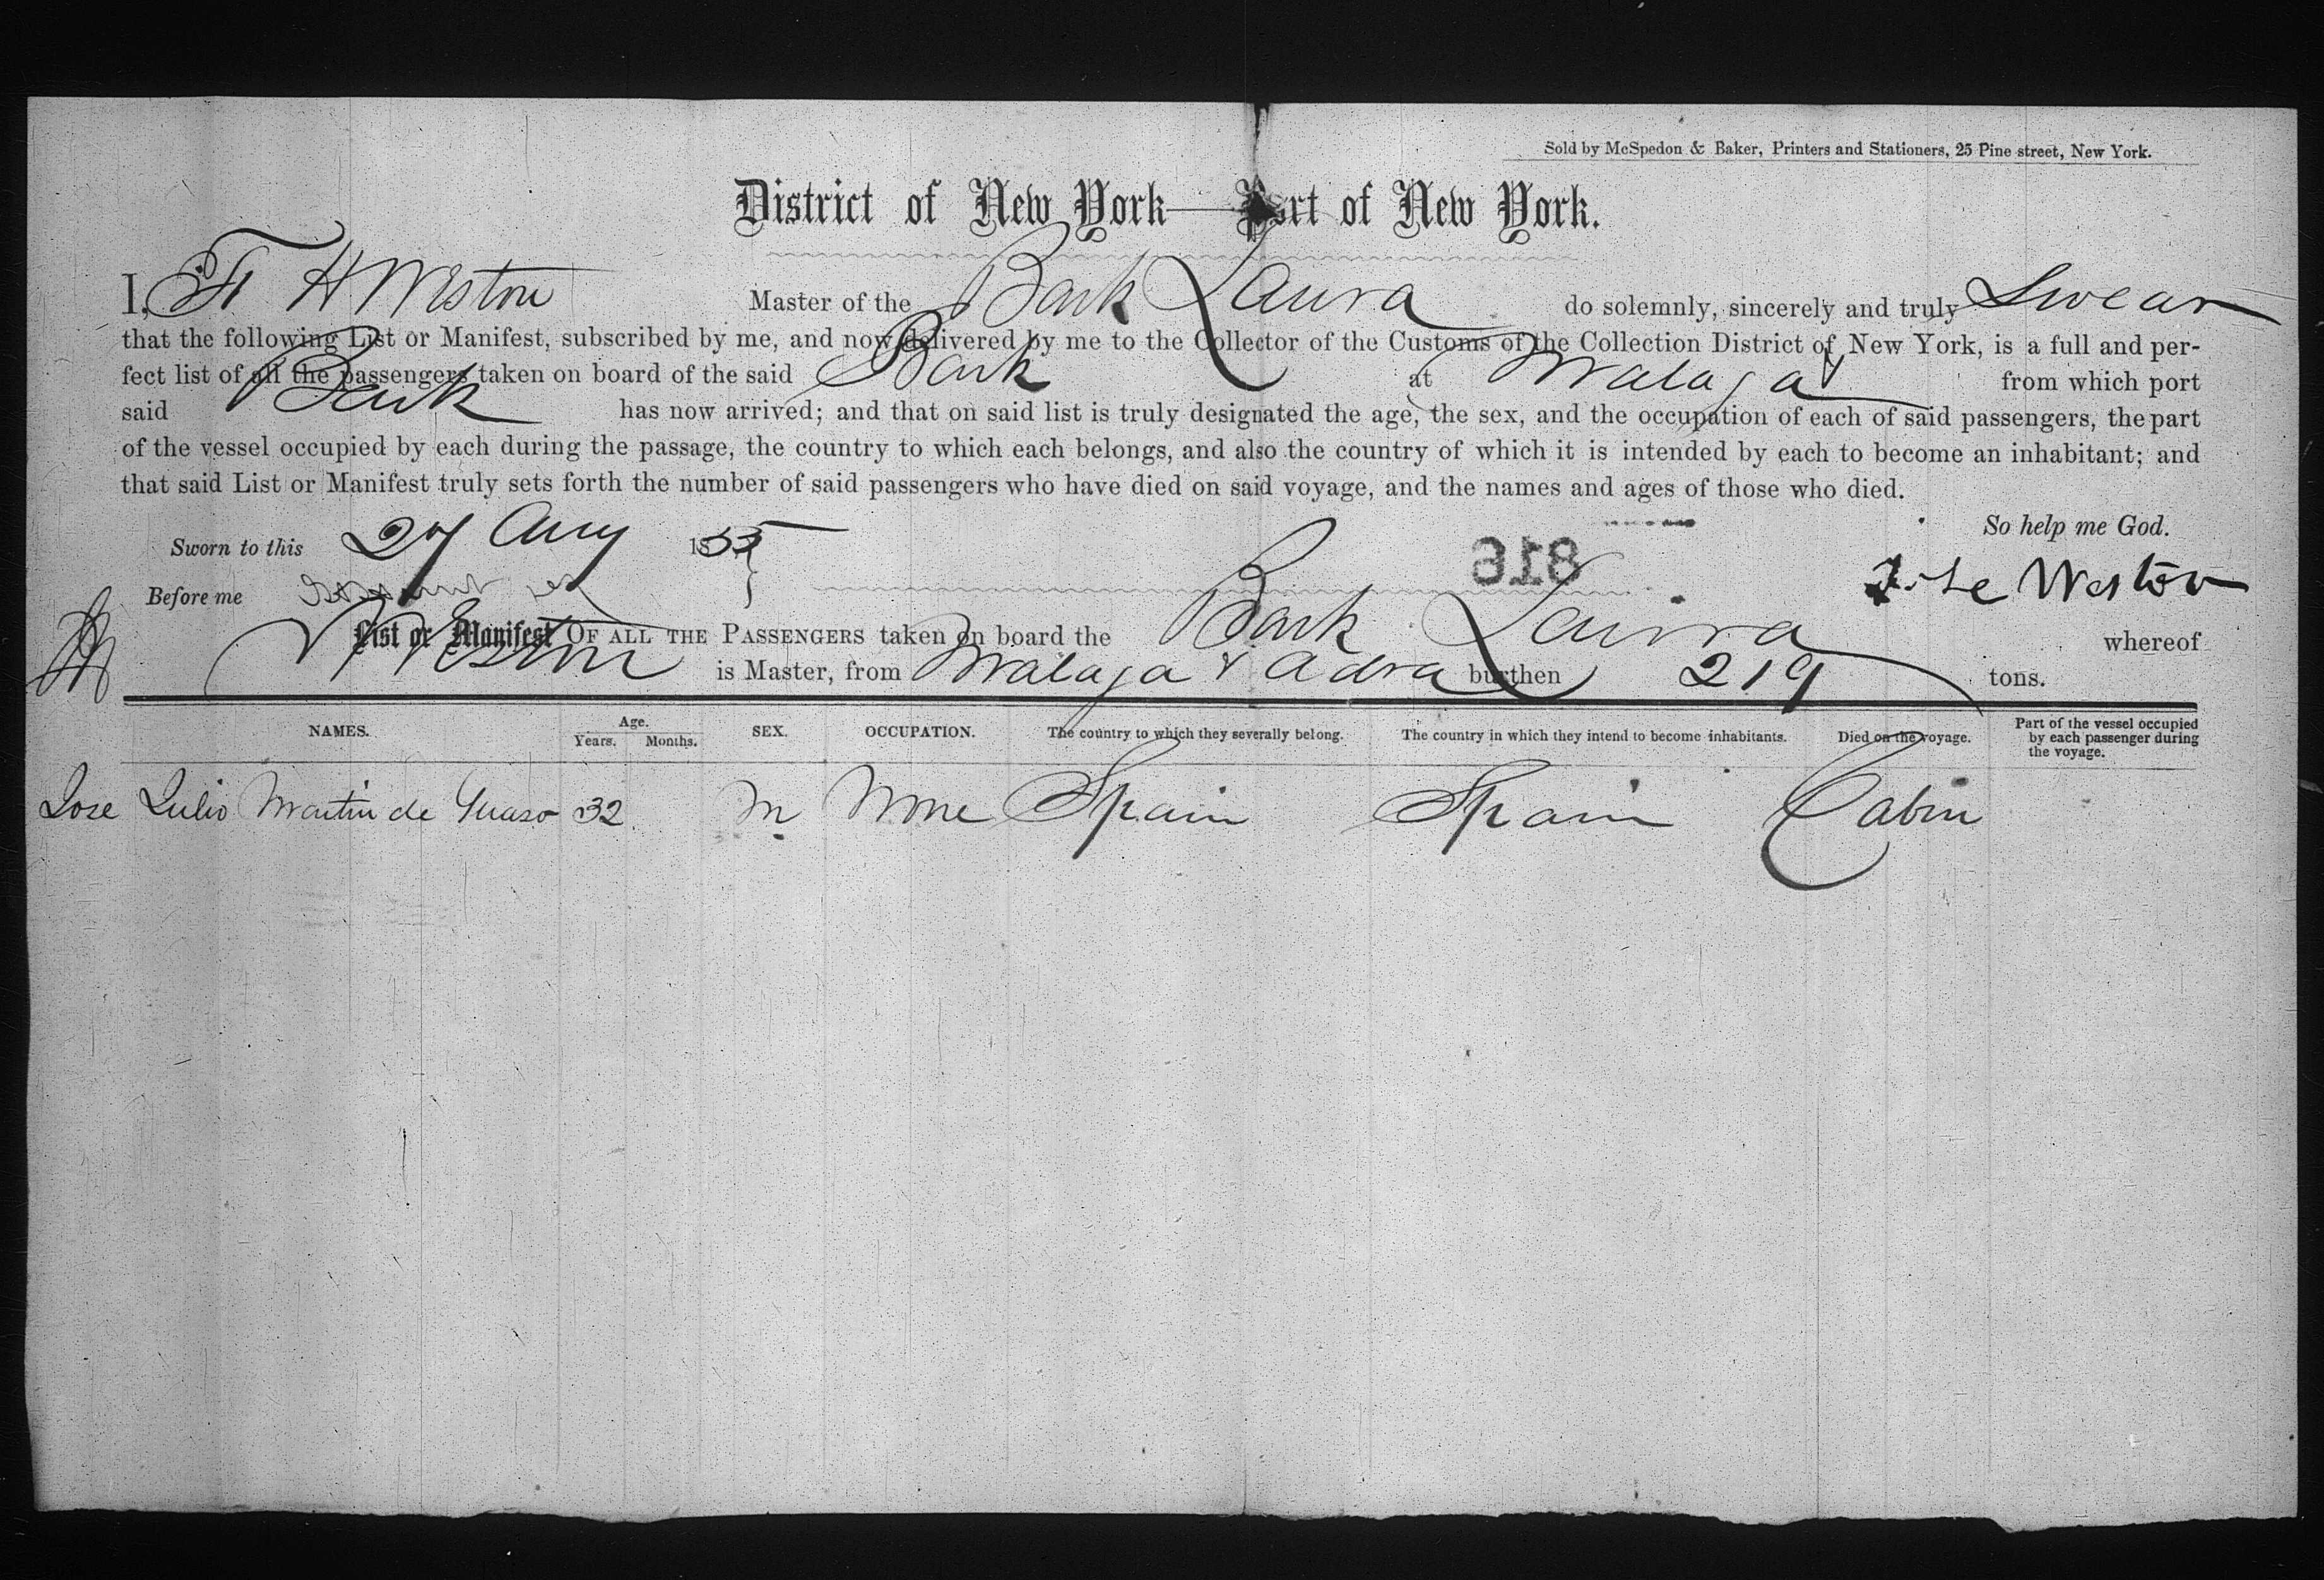 Sold by McSpedon & Baker, Printers and Stationers, 25 Pine street, New York.
District of New York—Port of New York.
I, H Weston Master of the Bark Laura do solemnly, sincerely and truly Swear
that the following List or Manifest, subscribed by me, and now delivered by me to the Collector of the Customs of the Collection District of New York, is a full and per-
fect list of all the passengers taken on board of the said Bark at Malaga from which port
said Bark has now arrived; and that on said list is truly designated the age, the sex, and the occupation of each of said passengers, the part
of the vessel occupied by each during the passage, the country to which each belongs, and also the country of which it is intended by each to become an inhabitant; and
that said List or Manifest truly sets forth the number of said passengers who have died on said voyage, and the names and ages of those who died.
So help me God.
Sworn to this 27 Aug 1855
816
Before me Weston
List or Manifest OF ALL THE PASSENGERS taken on board the Bark Laura whereof
Weston is Master, from Malaga & Adra burthen 219 tons.
NAMES. Age. Years. Months. SEX. OCCUPATION. The country to which they severally belong. The country in which they intend to become inhabitants. Died on the voyage. Part of the vessel occupied by each passenger during the voyage.
Jose Julio Martin de 32 M None Spain Spain Cabin